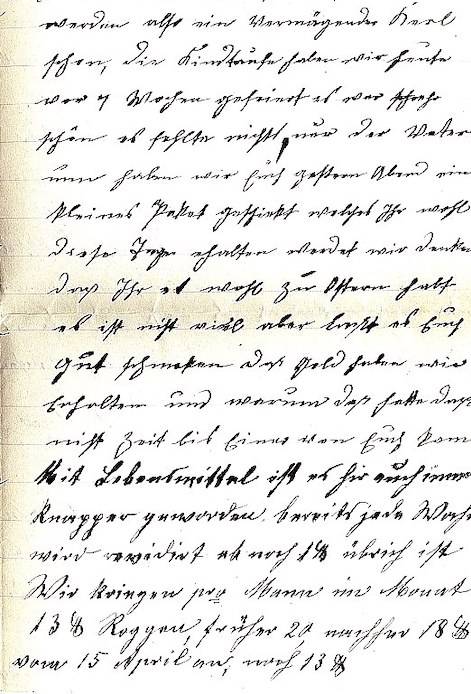 werden also ein Vermägender Kerl
schon, die Kindtaufe haben wir heute
vor 4 Wochen gefeiert es war schehr
schön es fehlte nichts nur der Vater
nun haben wir Euch gestern Abend ein
kleines Paket geschickt welches Ihr wohl
diese Tage erhalten werdet wir denken
daß Ihr et wohl zu Ostern habt
es ist nicht viel aber laßt es Euch
gut schmeken das Geld haben wir
Erhalten und warum das hatte doch
nicht Zeit bis Einer von Euch kam
Mit Lebensmittel ist es hir auch immer
Knapper geworden bereits jede Woche
wird revidirt ob noch 1 ℔ übrich ist
Wir kriegen pro Mann im Monat
13 ℔ Roggen, früher 20 nachher 18 ℔
vom 15 April an, noch 13 ℔